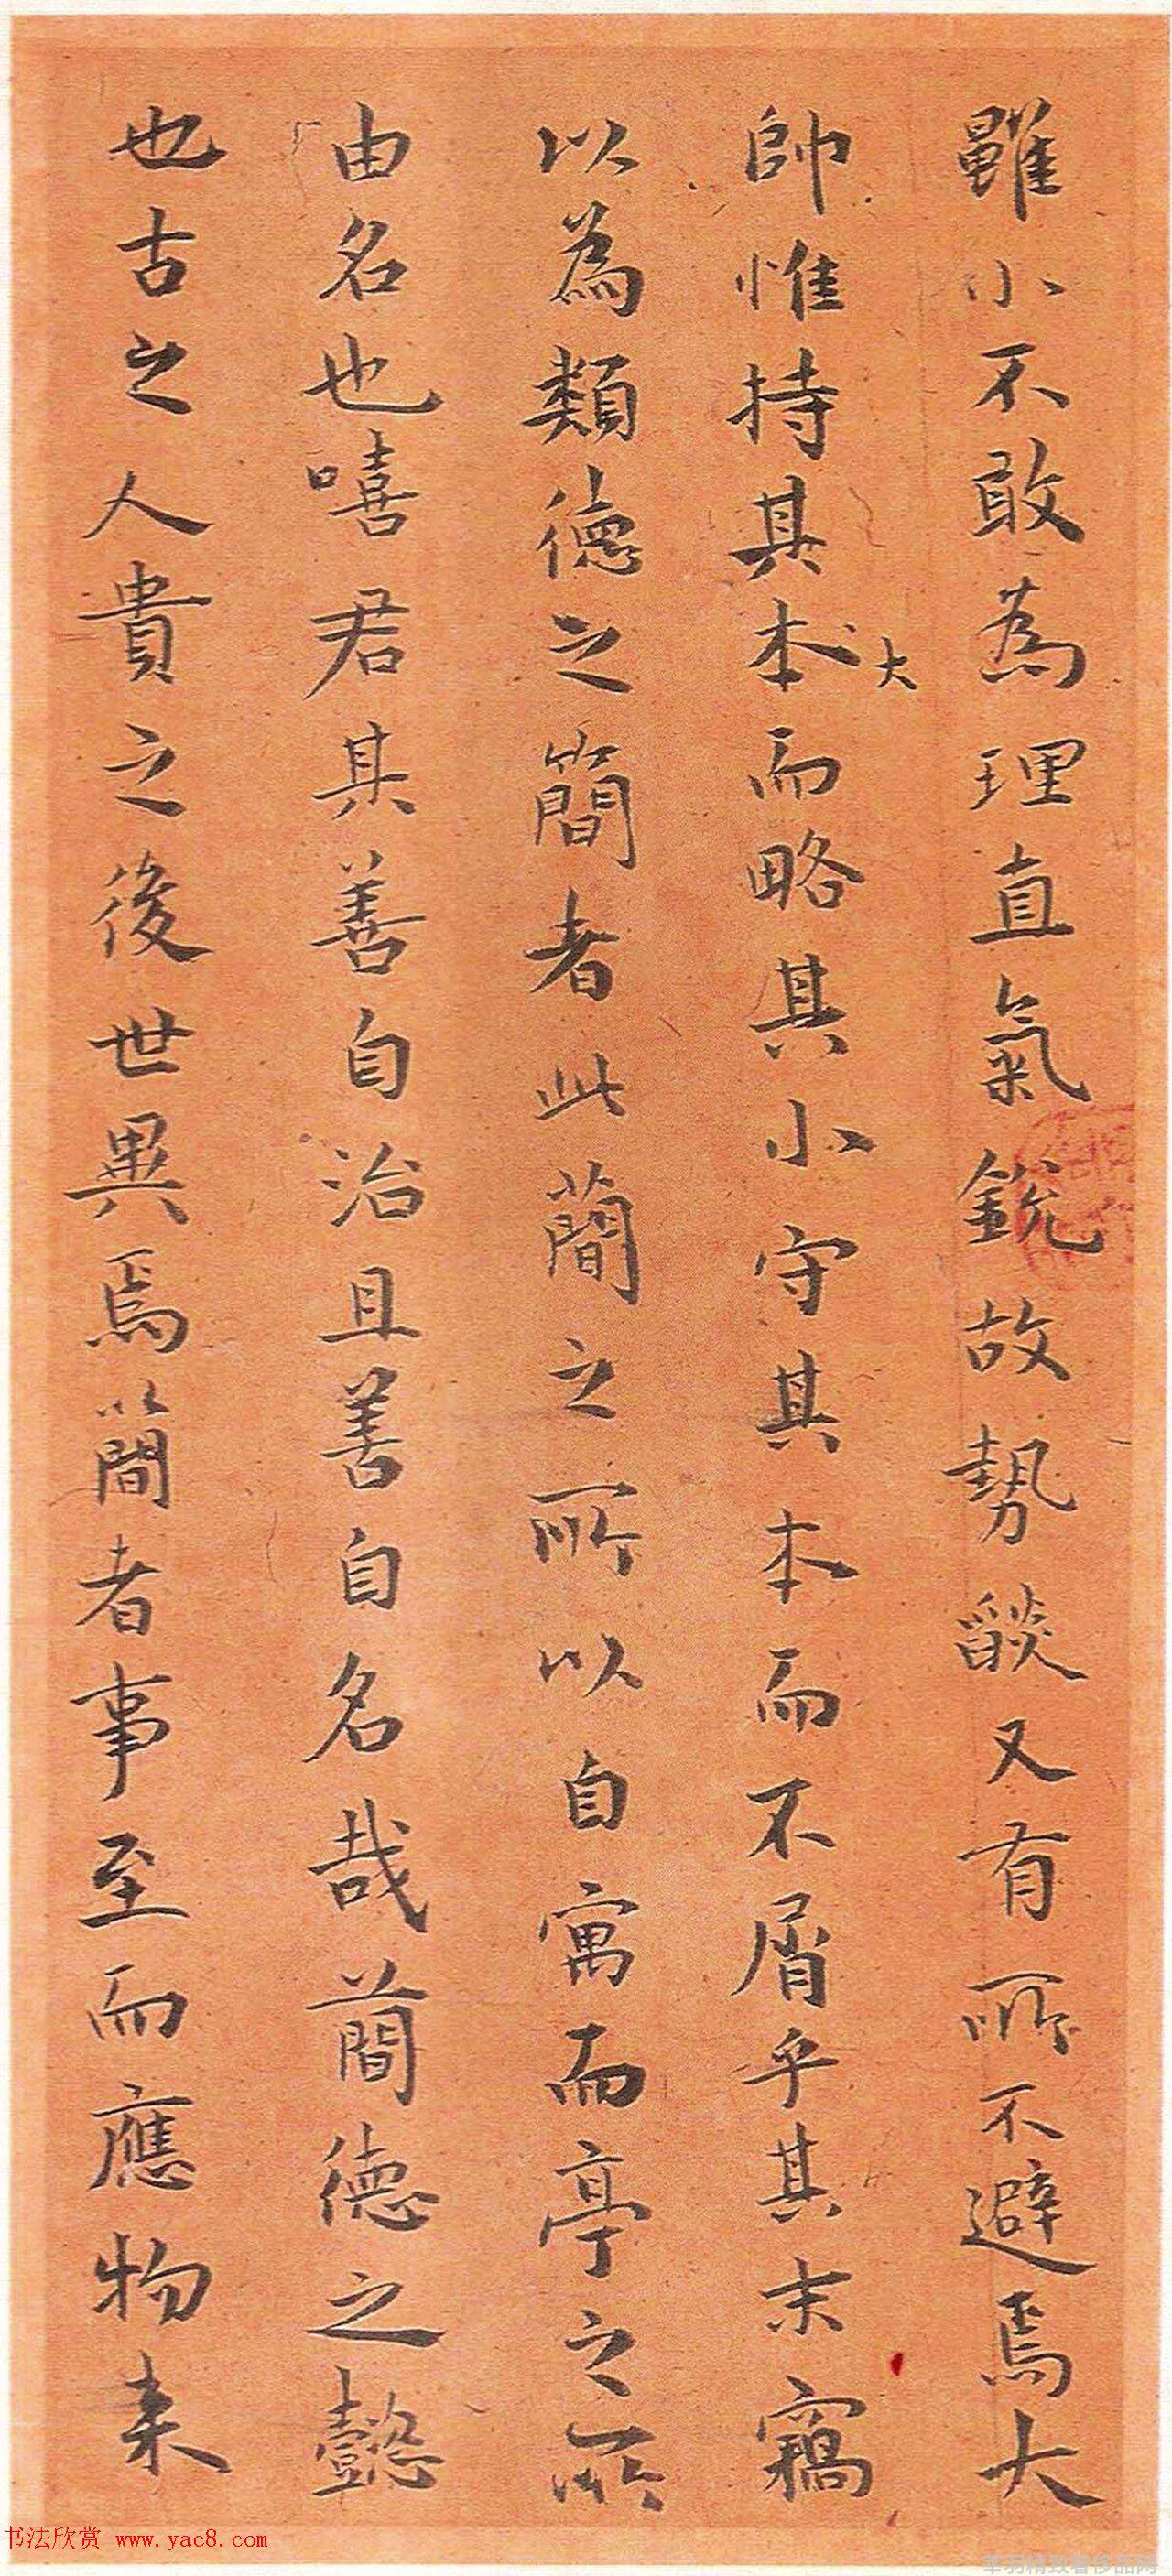 雖小不敢為理直氣銳故勢燄又有所不避焉大
帥惟持其本而略其小守其本而不屑乎其末竊
大
以為類德之簡者此蕳之所以自寓而亭之所
由名也嘻君其善自治且善自名哉蕳德之懿
也古之人貴之後世異焉簡者事至而應物来
书法欣赏 www.yac8.com